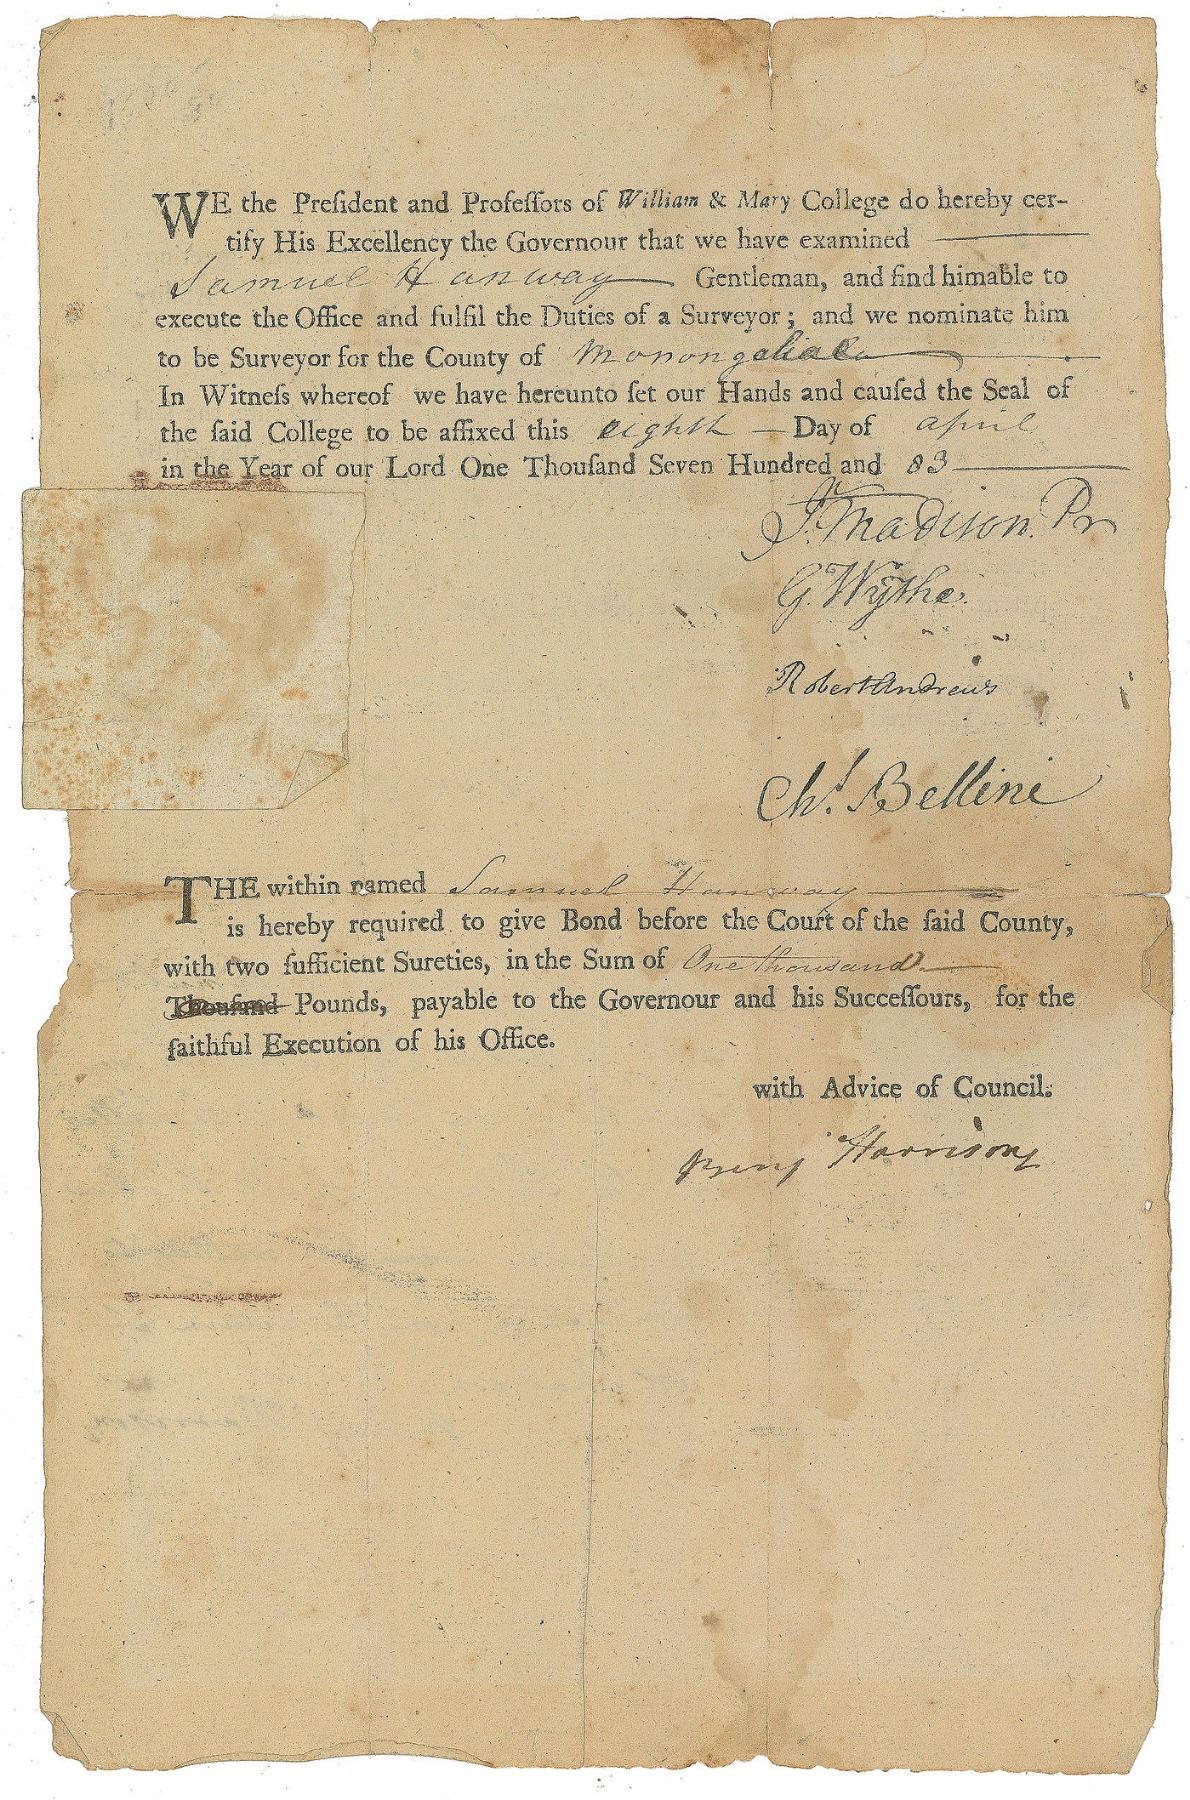 WE the Preſident and Profeſſors of William & Mary College do hereby cer-
tify His Excellency the Governour that we have examined
Samuel Hanway Gentleman, and find him able to
execute the Office and fulfil the Duties of a Surveyor; and we nominate him
to be Surveyor for the County of Monongaliala
In Witneſs whereof we have hereunto ſet our Hands and cauſed the Seal of
the ſaid College to be affixed this eighth Day of april
in the Year of our Lord One Thouſand Seven Hundred and 83
J. Madison. Pr
G. Wythe.
Robert Andrews
Chs. Bellini
THE within named Samuel Hanway
is hereby required to give Bond before the Court of the ſaid County,
with two ſufficient Sureties, in the Sum of One thousand
Thouſand Pounds, payable to the Governour and his Succeſſours, for the
faithful Execution of his Office.
with Advice of Council.
Benj Harrison